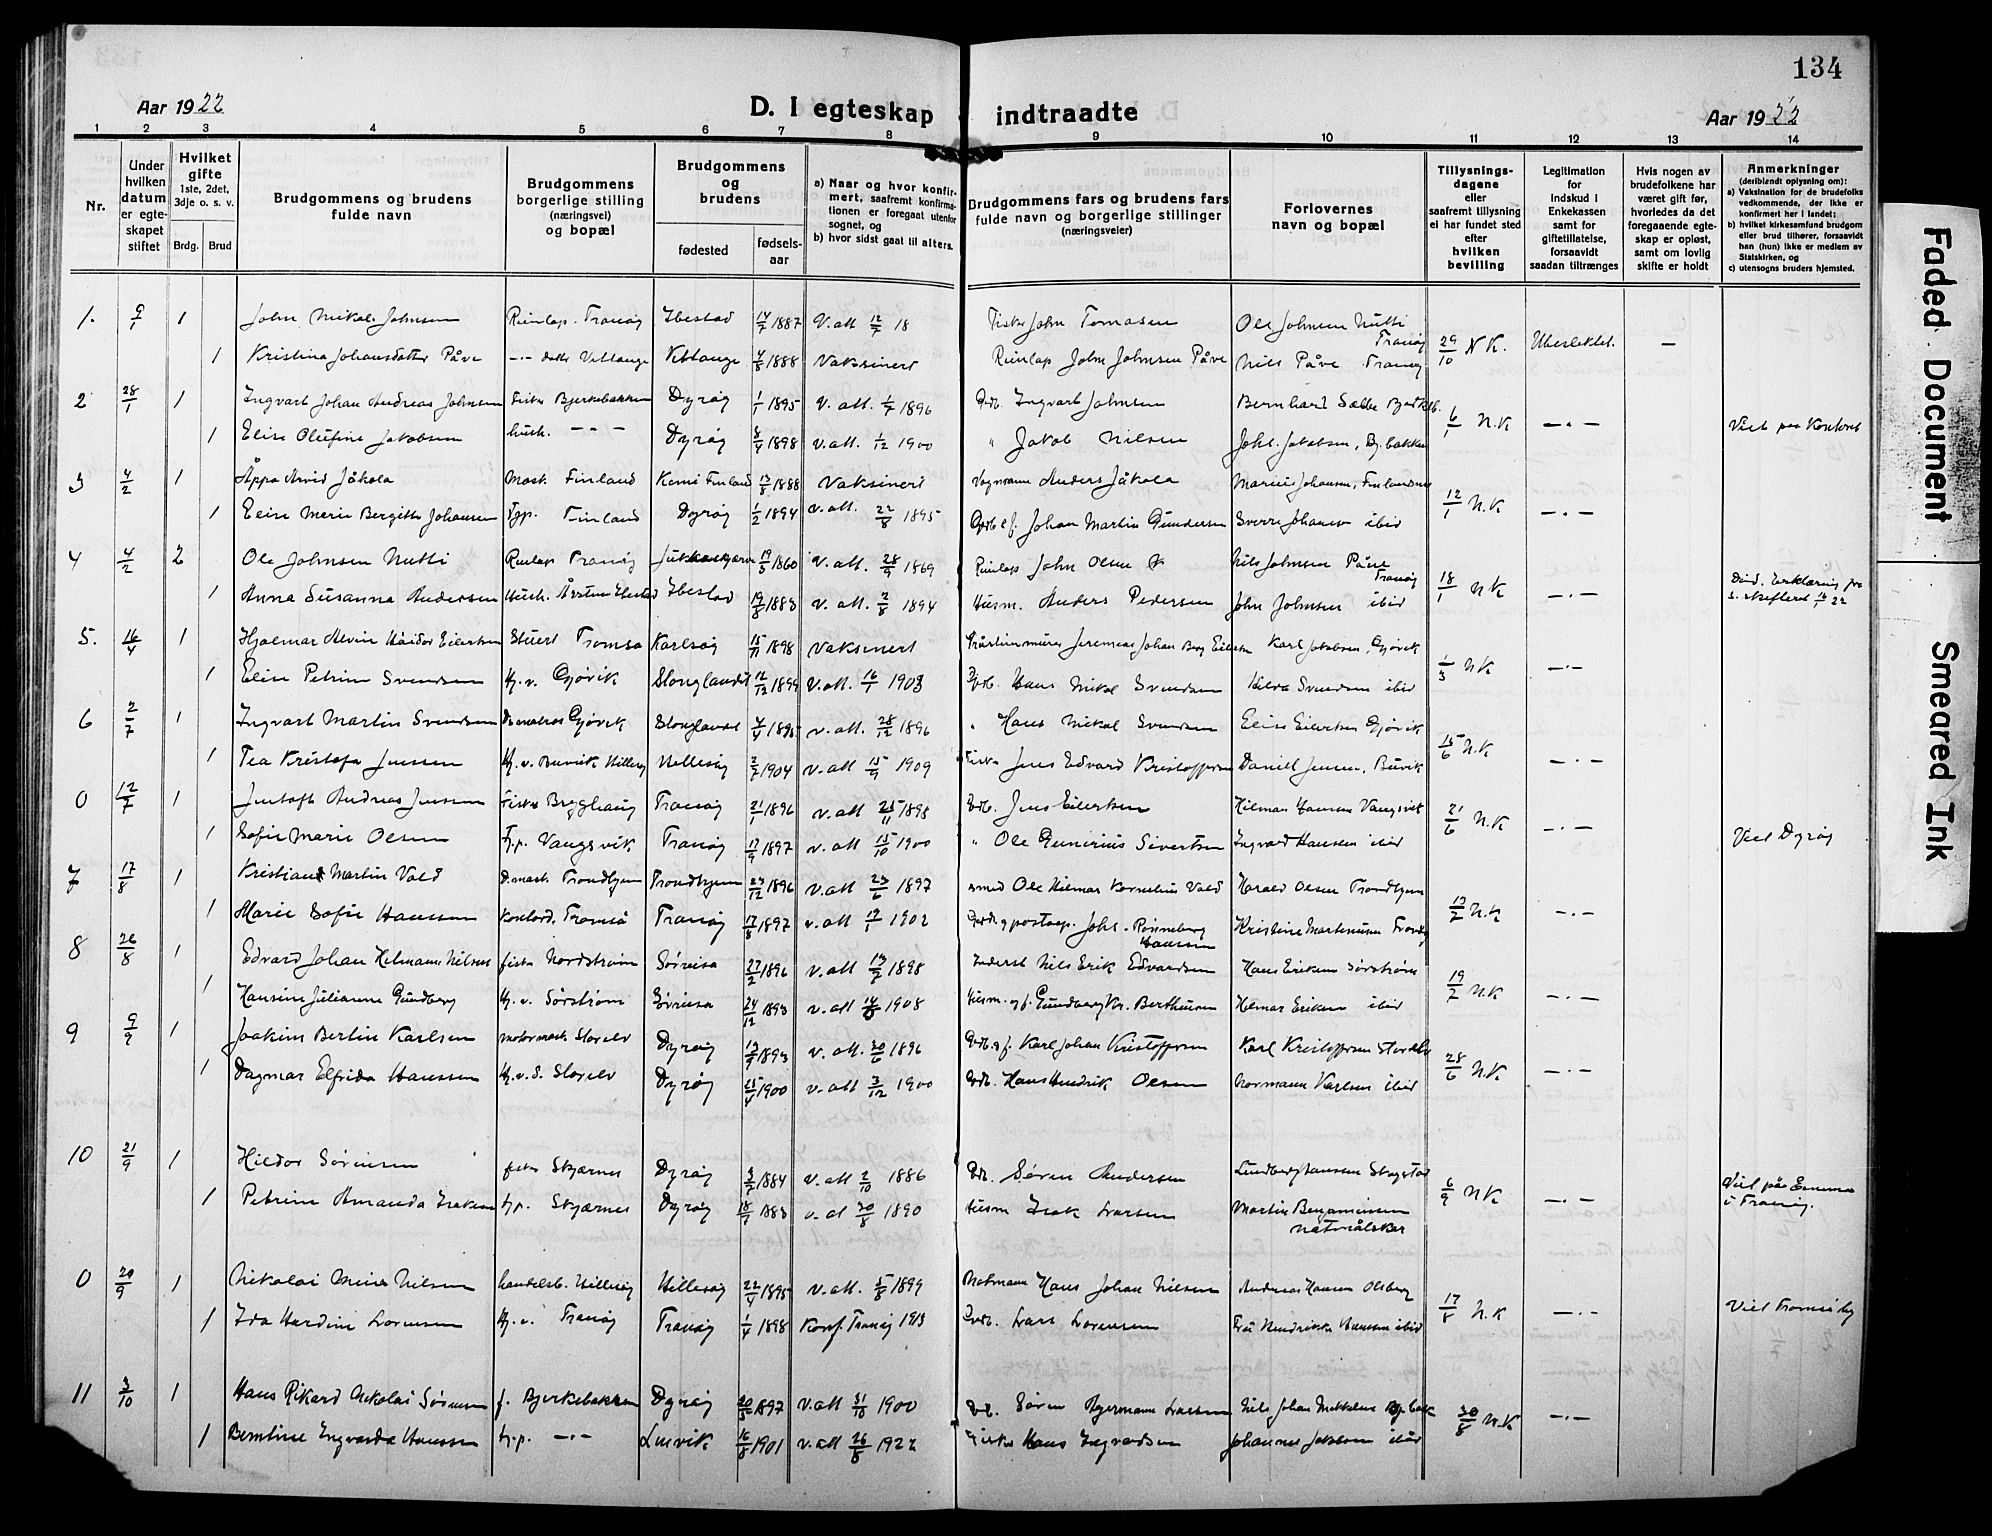 134
Aar 1922
D. I egteskap indtraadte
Aar 1922
1 2 3 4 5 6 7 8 9 10 11 12 13 14
Nr.
Under hvilken datum er egteskapet stiftet
Hvilket gifte 1ste, 2det, 3dje o. s. v.
Brdg. Brud
Brudgommens og brudens fulde navn
Brudgommens borgerlige stilling (næringsvei) og bopæl
Brudgommens og brudens
fødested fødsels-aar
a) Naar og hvor konfirmert, saafremt konfirmationen er foregaat utenfor sognet, og
b) hvor sidst gaat til alters.
Brudgommens fars og brudens fars fulde navn og borgerlige stillinger (næringsveier)
Forlovernes navn og bopæl
Tillysningsdagene eller saafremt tillysning ei har fundet sted efter hvilken bevilling
Legitimation for Indskud i Enkekassen samt for giftetillatelse, forsaavidt saadan tiltrænges
Hvis nogen av brudefolkene har været gift før, hvorledes da det foregaaende egteskap er opløst, samt om lovlig skifte er holdt
Anmerkninger (deriblandt oplysning om):
a) Vaksination for de brudefolks vedkommende, der ikke er konfirmert her i landet;
b) hvilket kirkesamfund brudgom eller brud tilhører, forsaavidt han (hun) ikke er medlem av Statskirken, og
c) utensogns bruders hjemsted.
1. 9/1 1 John Nikol. Johnsen Tranøy Ibestad 14/7 1887 V. att 12/7 18 Fisker John Tomasen Ole Johnsen Nutti Tranøy 29/10 N.K. —
1 Kristina Johansdatter Påve Vittange 4/8 1888 Vaksinert John Johnsen Påve Nils Påve Tranøy
2 28/1 1 Ingvart Johan Andreas Johnsen Fisker Bjerkebakken Dyrøy 1/1 1895 V. att. 1/7 1896 Grdb. Ingvart Johnsen Bernhard Sætbe 6/1 N.K —"— Viet paa Kontoret
1 Elise Olufine Jakobsen hush. —"— Dyrøy 8/4 1898 V. att. 1/12 1900 " Jakob Nilsen Johs. Jakobsen, Bj.bakken
3 4/2 1 Åppo Arvid Jåkola Mask. Finland Kemi Finland 13/8 1888 Vaksinert Anders Jåkola Marius Johansen, Finlandsnes 12/1 N.K —"—
1 Elise Merie Bergitte Johansen Tjp. Finland Dyrøy 1/2 1894 V. att. 22/8 1895 Grdb & f. Johan Martin Gundersen Sverre Johansen ibid
4 4/2 2 Ole Johnsen Nutti Tranøy Jukkasjærvi 19/3 1860 V. att. 28/9 1869 John Olsen Nils Johnsen Påve Tranøy 18/1 N.K —"—
1 Anna Susanna Andersen Hush. Årstun Ibestad Ibestad 19/8 1883 V. att. 2/8 1894 Husm. Anders Pedersen John Johnsen ibid
5. 16/4 1 Hjalmar Alvin Eilertsen Stuert Tromsø Karlsøy 15/11 1898 Vaksinert Jeremias Johan Berg Eilertsen Karl Jakobsen, Gjøvik 1/3 N.K —"—
1 Elise Petrine Svendsen Hj.v. Gjøvik Stonglandet 12/12 1899 V. att. 16/1 1903 Grdb. Hans Nikol Svendsen Hilda Svendsen ibid
6 2/7 1 Ingvart Martin Svendsen Gjøvik Stonglandet 4/4 1895 V. att. 28/12 1896 " Hans Nikol Svendsen Elise Eilertsen Gjøvik 15/6 N.K —"—
1 Tea Kristofa Jensen Hj.v. Buvik Hillesøy Hillesøy 2/2 1904 V. att 15/9 1909 Fisker Jens Edvard Kristoffersen Daniel Jensen, Buvik
0 12/7 1 Andreas Jensen Fisker Brygghaug Tranøy 21/1 1896 V. att 25/11 1898 Grdb. Jens Eilertsen Hilmar Hansen Vangsvik 21/6 N.K —"— Viet Dyrøy
1 Sofie Marie Olsen Tj.p. Vangsvik Tranøy 17/9 1897 V. att 15/10 1900 " Ole Gunerius Sivertsen Ingvald Hansen ibid
7 17/8 1 Kristian Martin Vold D.mask. Trondhjem Trondhjem 23/12 1896 V. att 23/6 1897 smed Ole Hilmar Kornelius Vold Harald Olsen Trondhjem 13/7 N.K —"—
1 Marie Sofie Hanssen Kontord. Tromsø Tranøy 17/8 1897 V. att 17/1 1902 Johs. Rønneberg Hanssen Kristine Martinusen
8 26/8 1 Edvard Johan Helmann Nilsen fisker Nordstrøm Sørreisa 27/2 1896 V. att 13/2 1898 Nils Erik Edvardsen Hans Eriksen Sørstrøm 19/7 N.K —"—
1 Hansine Julianne Gundberg Hj.v. Sørstrøm Sørreisa 24/12 1893 V. att 14/8 1908 Husm. og f. Gundberg Kr. Berthusen Hilmar Eriksen ibid
9 9/9 1 Joakim Bertin Karlsen motormask. Storelv Dyrøy 13/9 1893 V. att. 30/6 1896 Grdb. & f. Karl Johan Kristoffersen Karl Kristoffersen Storelv 28/6 N.K —"—
1 Dagmar Elfrida Hanssen Hj.v. S. Storelv Dyrøy 25/4 1900 V. att 3/12 1900 Grdb. Hans Hendrik Olsen Normann Karlsen ibid
10 21/9 1 Hildor Sørensen fisker Skjærnes Dyrøy 3/7 1884 V. att 2/10 1886 Grdb. Søren Andersen Lundberg Hanssen Skogstad 6/9 N.K —"— Viet på i Tranøy.
1 Petrine Amanda Isaksen tjp. Skjærnes Dyrøy 18/7 1883 V. at 30/8 1890 Husm Isak Larsen Martin Benjaminsen
0 20/9 1 Nikolai Meier Nilsen handelsb. Hillesøy Hillesøy 22/4 1895 V. att. 5/8 1899 Hans Johan Nilsen Andreas Hansen Olsborg 17/8 N.K —"— Viet Tromsø by
1 Ida Hardine Lorensen Hj.v. Tranøy Tranøy 1/4 1898 Konf. Tranøy 1913 Grdb. Lars Lorensen Fru Hendrikke Hanssen ibid
11 3/10 1 Hans Rikard Nikolai Sørensen f. Bjerkebakken Dyrøy 20/5 1897 V. att 31/10 1900 Grdb. Søren Hjermann Larssen Nils Johan Mikkelsen Bj. bak 30/8 N.K —"—
1 Berntine Ingvarda Hanssen tj.p. —"— Lenvik 16/8 1901 V. att 26/8 1922 Fisker Hans Ingvardsen Johannes Jakobsen ibid
Faded Document
Smeared Ink